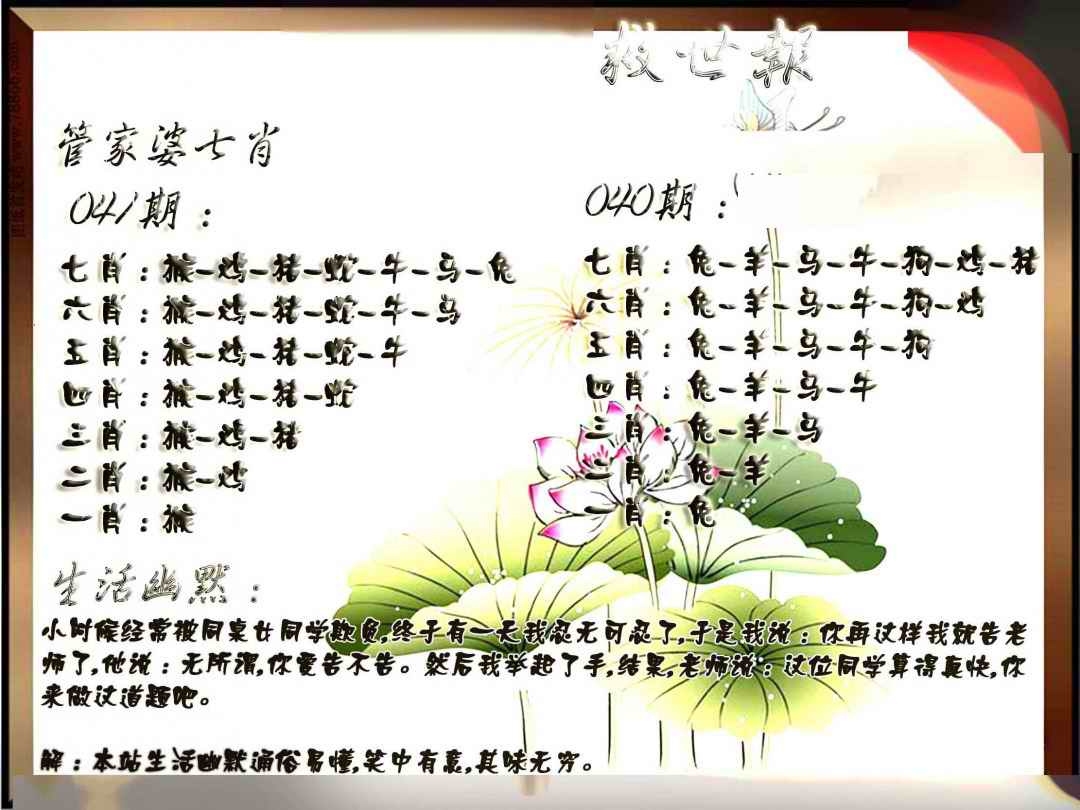 救世報
管家婆七肖
041期：
七肖：猴-鸡-猪-蛇-牛-马-兔
六肖：猴-鸡-猪-蛇-牛-马
五肖：猴-鸡-猪-蛇-牛
四肖：猴-鸡-猪-蛇
三肖：猴-鸡-猪
二肖：猴-鸡
一肖：猴
040期：
七肖：兔-羊-马-牛-狗-鸡-猪
六肖：兔-羊-马-牛-狗-鸡
五肖：兔-羊-马-牛-狗
四肖：兔-羊-马-牛
三肖：兔-羊-马
二肖：兔-羊
一肖：兔
生活幽默：
小时候经常被同桌女同学欺负,终于有一天我忍无可忍了,于是我说：你再这样我就告老
师了,他说：无所谓,你爱告不告。然后我举起了手,结果,老师说：这位同学算得真快,你
来做这道题吧。
解：本站生活幽默通俗易懂,笑中有意,其味无穷。